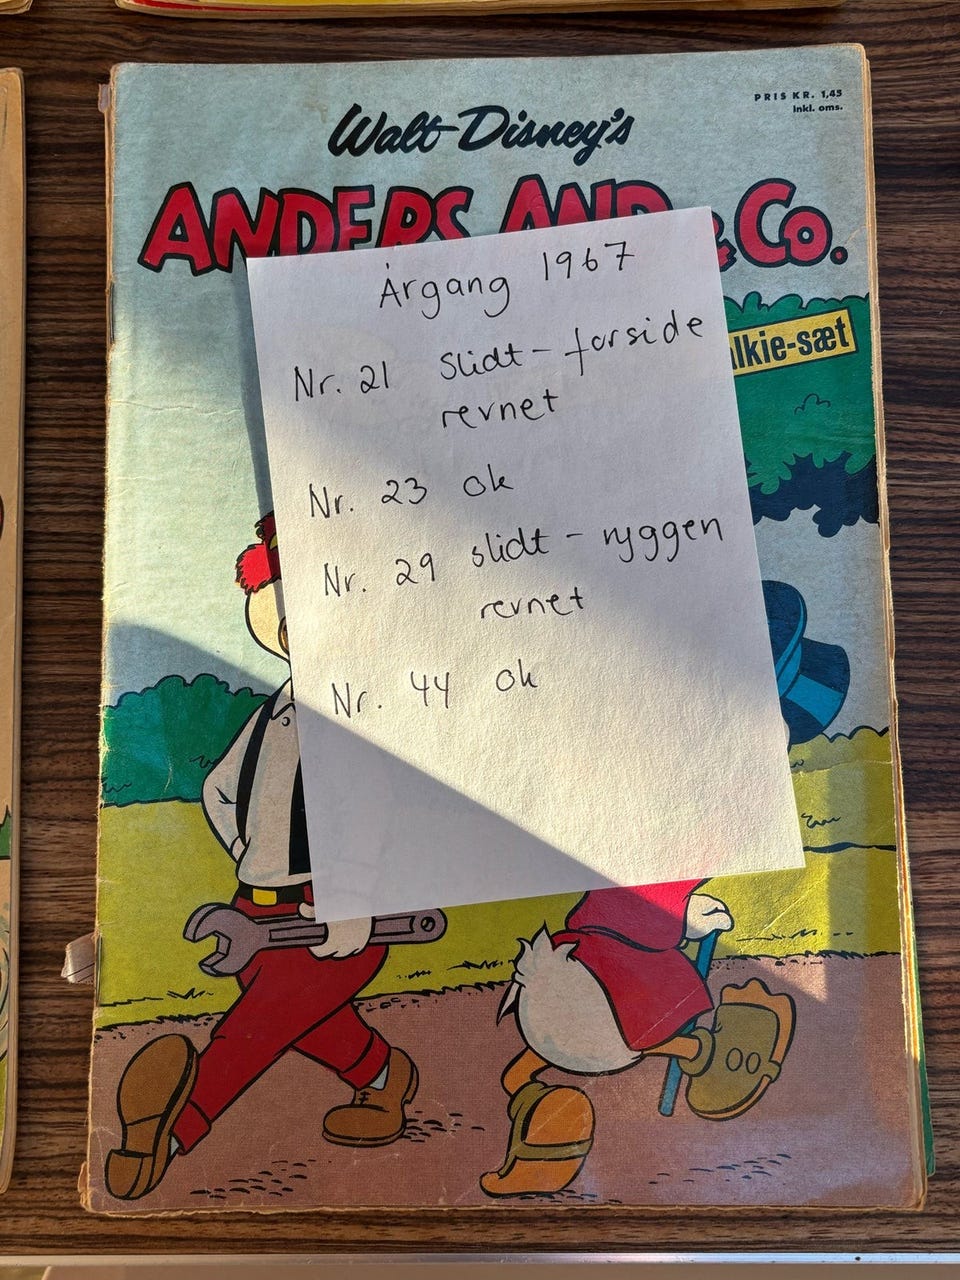 PRIS KR. 1,45
inkl. oms.
Walt Disney's
ANDERS AND & Co.
lkie-sæt
Årgang 1967
Nr. 21 Slidt - forside
revnet
Nr. 23 ok
Nr. 29 slidt - ryggen
revnet
Nr. 44 ok